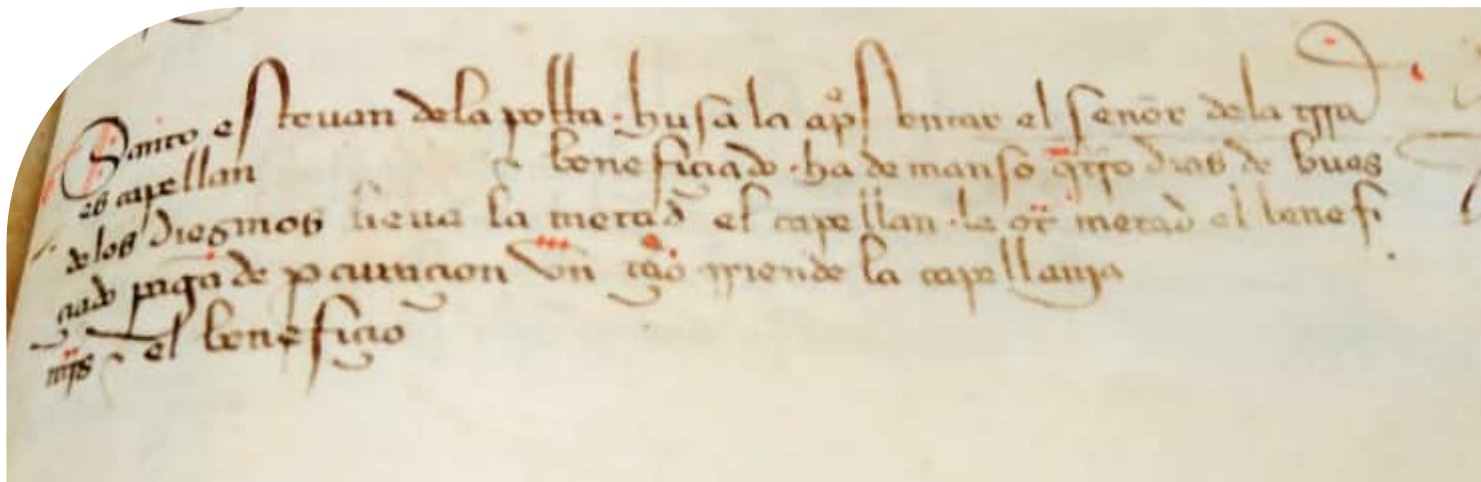 Santo esteuan dela polla · husa la ap̃sentar el señor dela tr̃ra
es capellan beneficiado · ha de manso q̃tro dias de bues
delos diesmos lieua la metad el capellan · la ot̃ metad el benefi
ciado paga de p̱curaçion vn rriende la capellanja
mr̃s el benefiçio